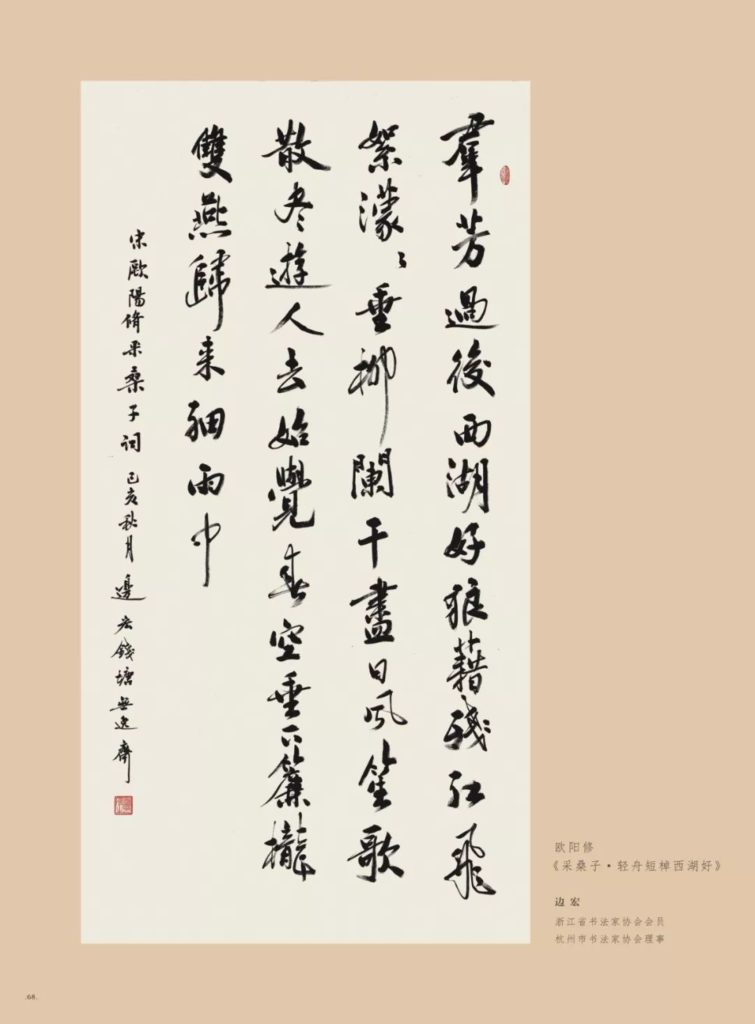 羣芳過後西湖好狼藉殘紅飛
絮濛〻垂柳闌干盡日風笙歌
散盡遊人去始覺春空垂下簾櫳
雙燕歸来細雨中
宋歐陽脩采桑子詞己亥秋月邊宏錢塘無逸齋
欧阳修
《采桑子·轻舟短棹西湖好》
边宏
浙江省书法家协会会员
杭州市书法家协会理事
.68.